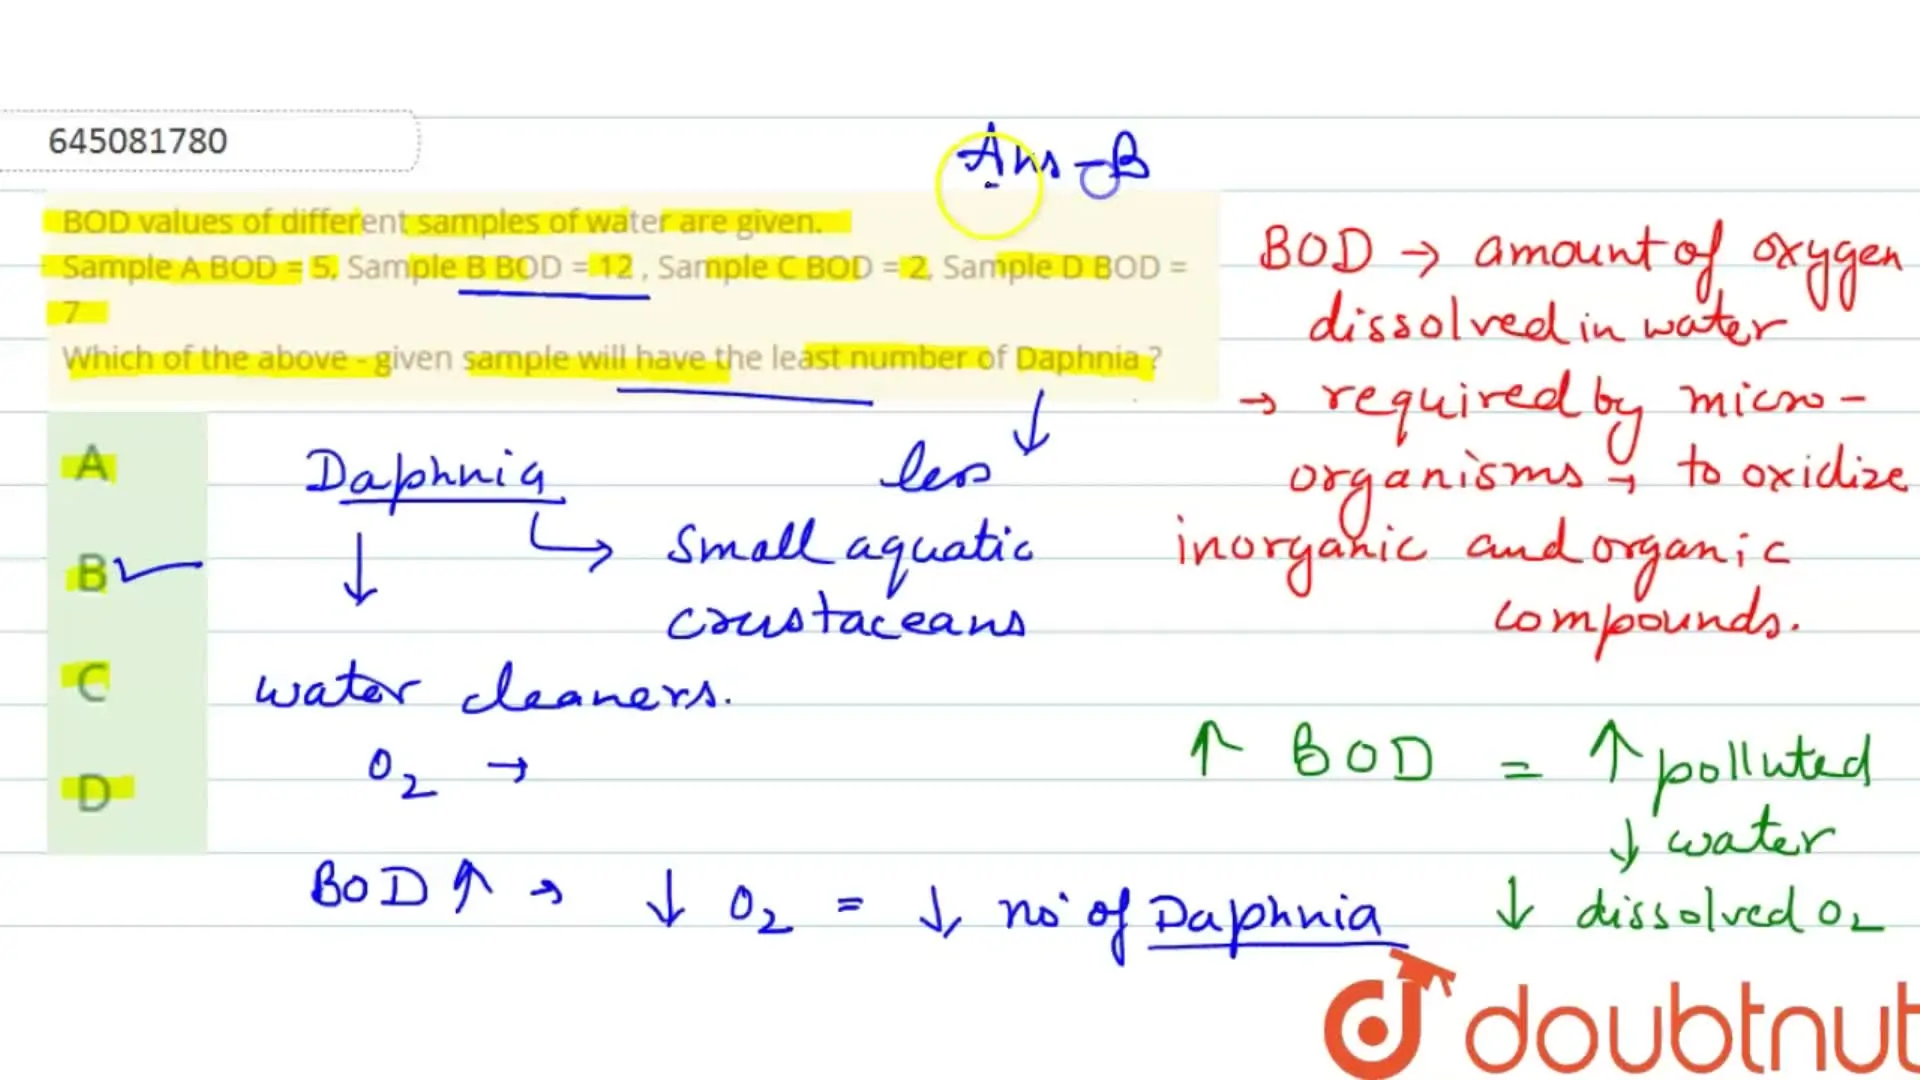 645081780
Ans - B
BOD values of different samples of water are given.
Sample A BOD = 5, Sample B BOD = 12 , Sample C BOD = 2, Sample D BOD =
7
Which of the above - given sample will have the least number of Daphnia ?
A
B
C
D
Daphnia
less
→ small aquatic
crustaceans
↓
water cleaners.
O2 →
BOD ↑ → ↓ O2 = ↓ no. of Daphnia
BOD → amount of oxygen
dissolved in water
→ required by micro-
organisms → to oxidize
inorganic and organic
compounds.
↑ BOD = ↑ polluted
↓ water
↓ dissolved O2
doubtnut